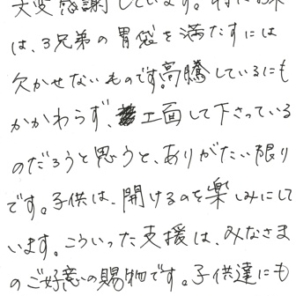 大変感謝しています。特にお米
は、3兄弟の胃袋を満たすには
欠かせないものです。高騰しているにも
かかわらず、工面して下さっている
のだろうと思うと、ありがたい限り
です。子供は、開けるのを楽しみにして
います。こういった支援は、みなさま
のご好意の賜物です。子供達にも